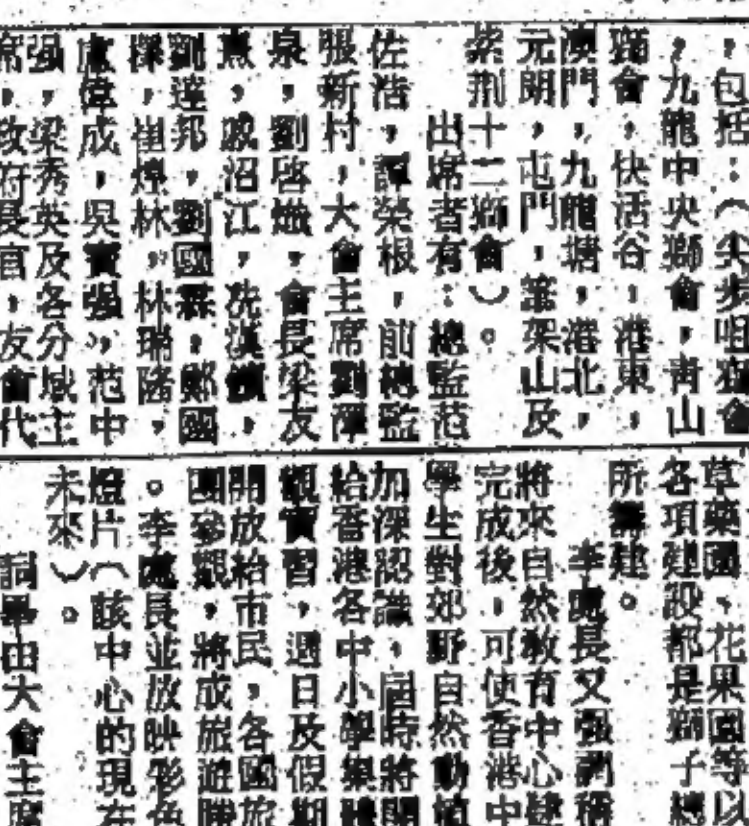 ，包括：（尖步咀獅會
，九龍中央獅會，青山
獅會，快活谷，港東，
澳門，九龍塘，港北，
元朗，屯門，筆架山及
紫荆十二獅會）。
出席者有：總監范
佐浩，譚榮根，前總監
張新村，大會主席劉
泉，劉啓，會長梁友
，戚沼江，冼漢
劉達邦，劉國霖，鄭國
，崔煌林，林瑞
盧偉成，吳寶强，范中
强，梁秀英及各分域主
席，政府長官，友會代
草藥園，花果園等以
各項建設都是獅子總
所籌建。
李處長又强調稱
將來自然教育中心建
完成後，可使香港中
學生對郊野自然動植
加深認識，同時將開
給香港各中小學集體
觀賞習，週日及假期
開放給市民，各國旅
團參觀，將成旅遊勝
。李處長並放映彩色
燈片（該中心的現在
未來）。
詞畢由大會主席